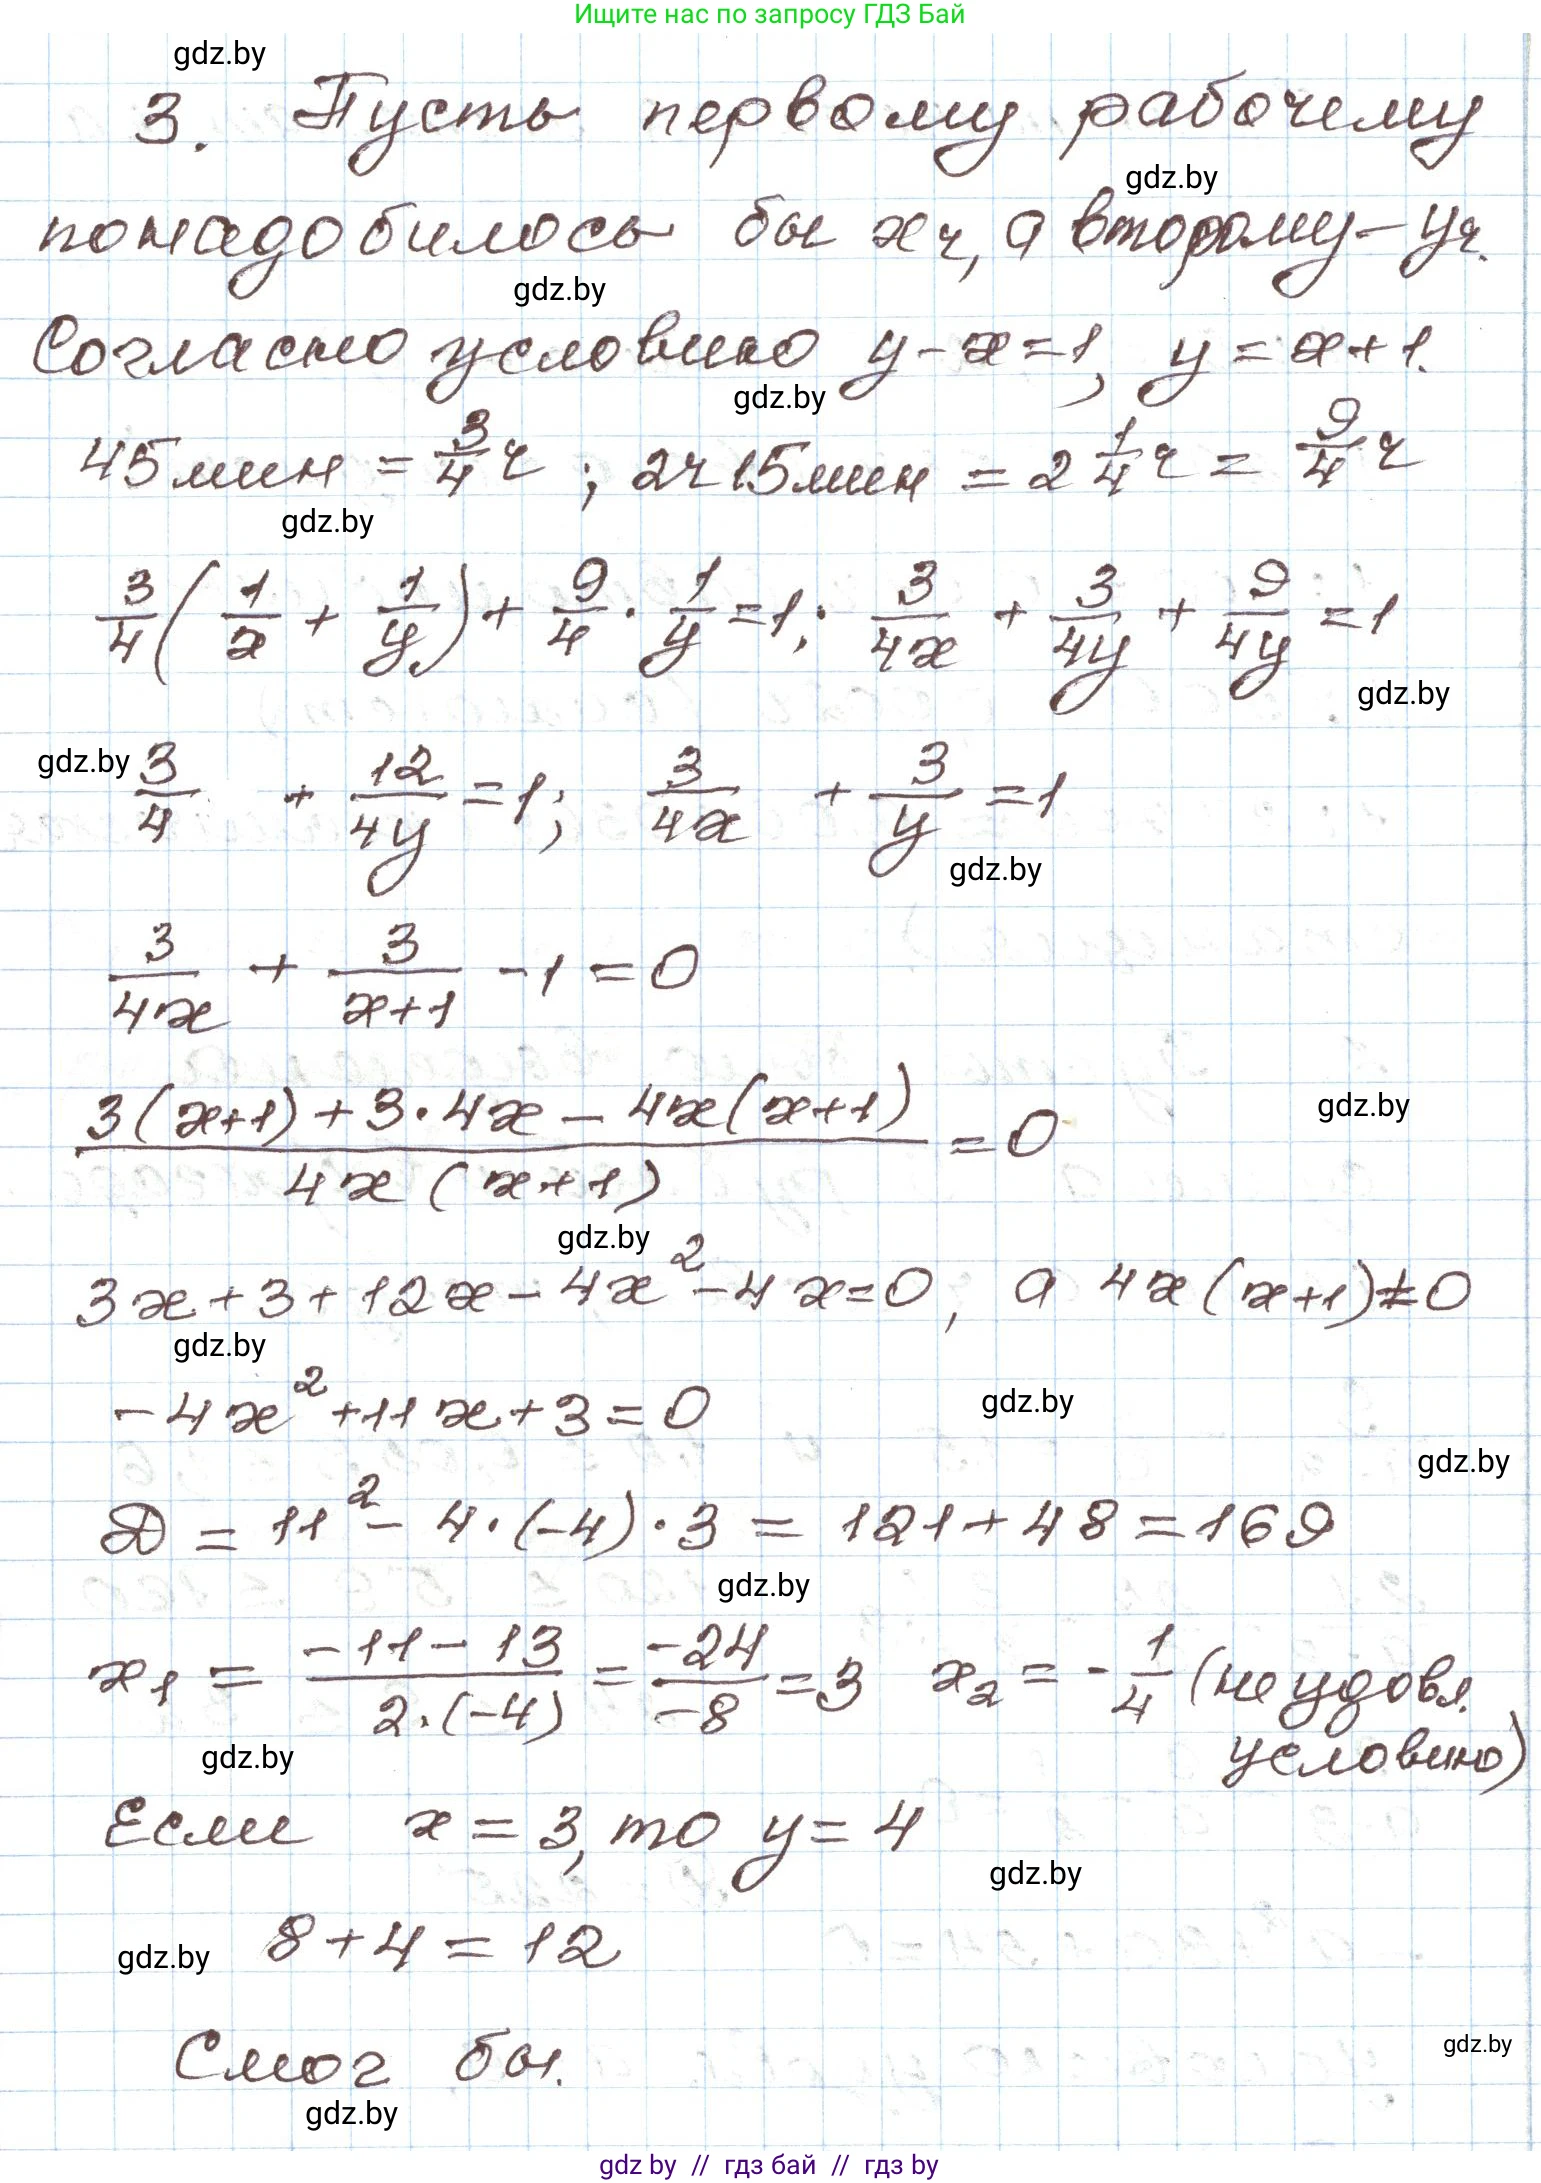 Ищите нас по запросу ГДЗ Бай
gdz.by
3. Пусть первому рабочему
gdz.by
понадобилось бы x ч, а второму – y ч.
gdz.by
Согласно условию y – x = 1, y = x + 1.
gdz.by
45 мин = 3/4 ч ; 2 ч 15 мин = 2 1/4 ч = 9/4 ч
gdz.by
3/4 (1/x + 1/y) + 9/4 · 1/y = 1; 3/4x + 3/4y + 9/4y = 1
gdz.by
gdz.by
3/4 + 12/4y = 1; 3/4x + 3/y = 1
gdz.by
3/4x + 3/(x+1) – 1 = 0
(3(x+1) + 3·4x – 4x(x+1))/(4x(x+1)) = 0
gdz.by
gdz.by
3x + 3 + 12x – 4x² – 4x = 0, а 4x(x+1) ≠ 0
gdz.by
– 4x² + 11x + 3 = 0
gdz.by
gdz.by
D = 11² – 4·(–4)·3 = 121 + 48 = 169
gdz.by
x₁ = (–11 – 13)/(2·(–4)) = –24/–8 = 3 x₂ = –1/4 (не удовл.
условию)
gdz.by
Если x = 3, то y = 4
gdz.by
8 + 4 = 12
gdz.by
Смог бы.
gdz.by
gdz.by
gdz by // гдз бай // гдз by